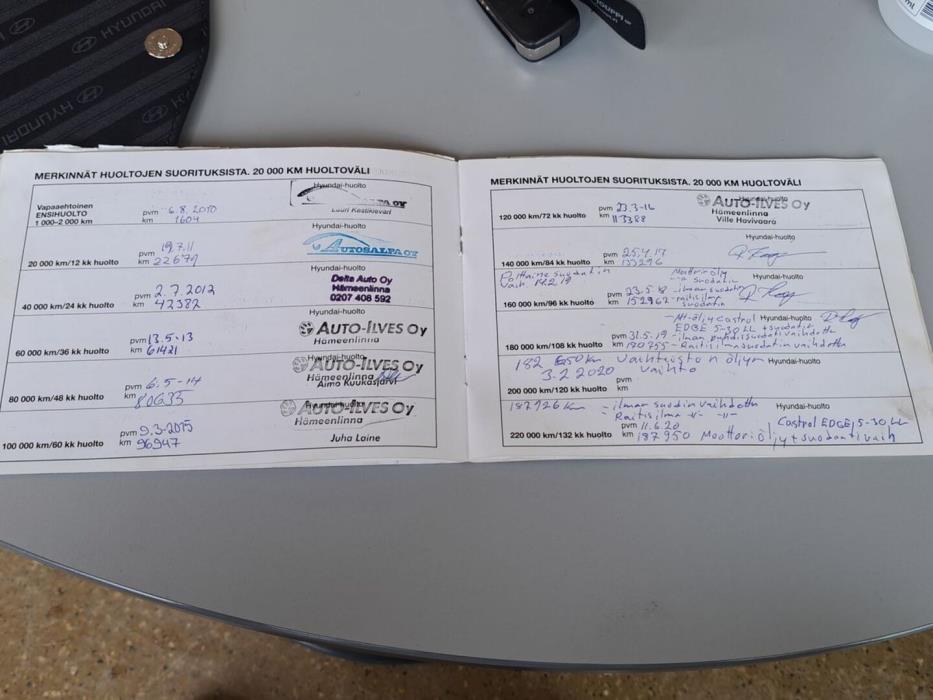 HYUNDAI
HYUNDAI
HYUNDAI
MERKINNÄT HUOLTOJEN SUORITUKSISTA. 20 000 KM HUOLTOVÄLI
Vapaaehtoinen
ENSIHUOLTO
1 000–2 000 km
pvm 6.8.2010
km 1604
Hyundai-huolto
Lauri Keskikevari
20 000 km/12 kk huolto
pvm 19.7.11
km 22679
Hyundai-huolto
AUTOSALPA OY
40 000 km/24 kk huolto
pvm 2.7.2012
km 42382
Hyundai-huolto
Delta Auto Oy
Hämeenlinna
0207 408 592
60 000 km/36 kk huolto
pvm 13.5.13
km 61421
Hyundai-huolto
AUTO-ILVES Oy
Hämeenlinna
80 000 km/48 kk huolto
pvm 6.5-14
km 80633
Hyundai-huolto
AUTO-ILVES Oy
Hämeenlinna
Aimo Kuukasjärvi
100 000 km/60 kk huolto
pvm 9.3-2015
km 96947
Hyundai-huolto
AUTO-ILVES Oy
Hämeenlinna
Juha Laine
MERKINNÄT HUOLTOJEN SUORITUKSISTA. 20 000 KM HUOLTOVÄLI
120 000 km/72 kk huolto
pvm 23.3-16
km 113388
Hyundai-huolto
AUTO-ILVES Oy
Hämeenlinna
Ville Hovivaara
140 000 km/84 kk huolto
pvm 25.4.17
km 133296
Hyundai-huolto
Polttoaine suodatin
vaih. 14.2.19
160 000 km/96 kk huolto
Moottoriöljy
-"- suodatin
pvm 23.5.18 - ilmansuodatin
km 152962 - raitisilma
suodatin
Hyundai-huolto
180 000 km/108 kk huolto
Hyundai-huolto
- Mt-öljy Castrol
EDGE 5-30 LL + suodatin
pvm 31.5.19 - ilman puhd.suodatin vaihdettu
km 180755 - Raitisilmasuodatin vaihdettu
182 650 km Vaihteiston öljyn
3.2.2020 vaihto
Hyundai-huolto
200 000 km/120 kk huolto
pvm
km
187926 km - ilmansuodin vaihdettu
Raitisilma -"- -"-
Hyundai-huolto
Castrol EDGE, 5-30 LL
220 000 km/132 kk huolto
pvm 11.6.20
km 187950 Moottoriöljy + suodatin vaih